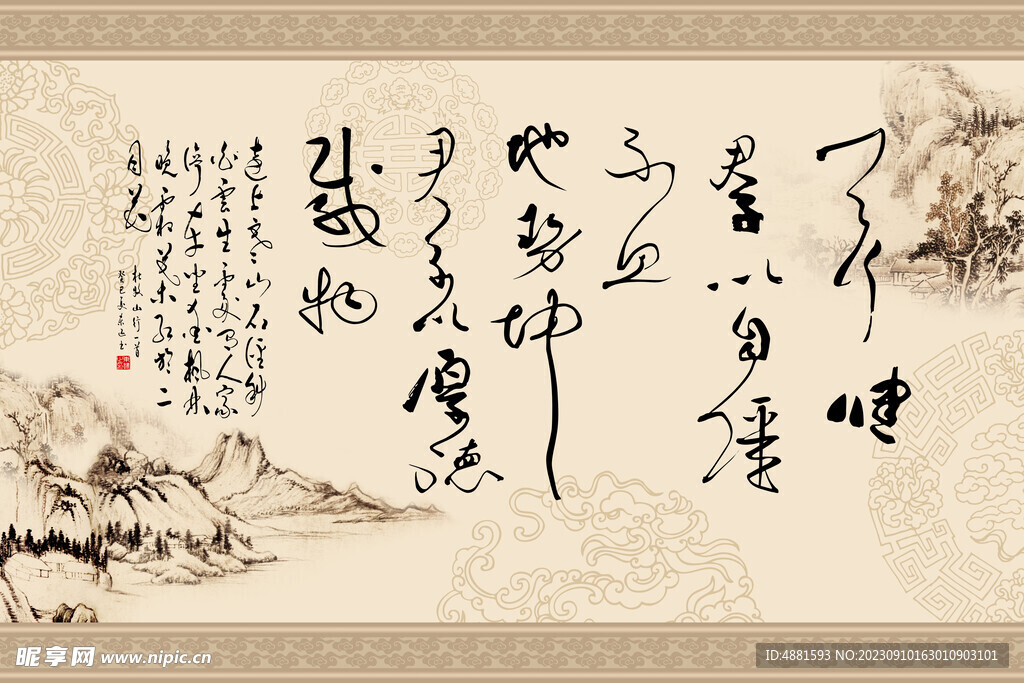 天行健
君子以自强
不息
地势坤
君子以厚德
载物
远上寒山石径斜
白云生处有人家
停车坐爱枫林
晚霜叶红于二
月花
杜牧山行一首
昵享网 www.nipic.cn
ID:4881593 NO:20230910163010903101